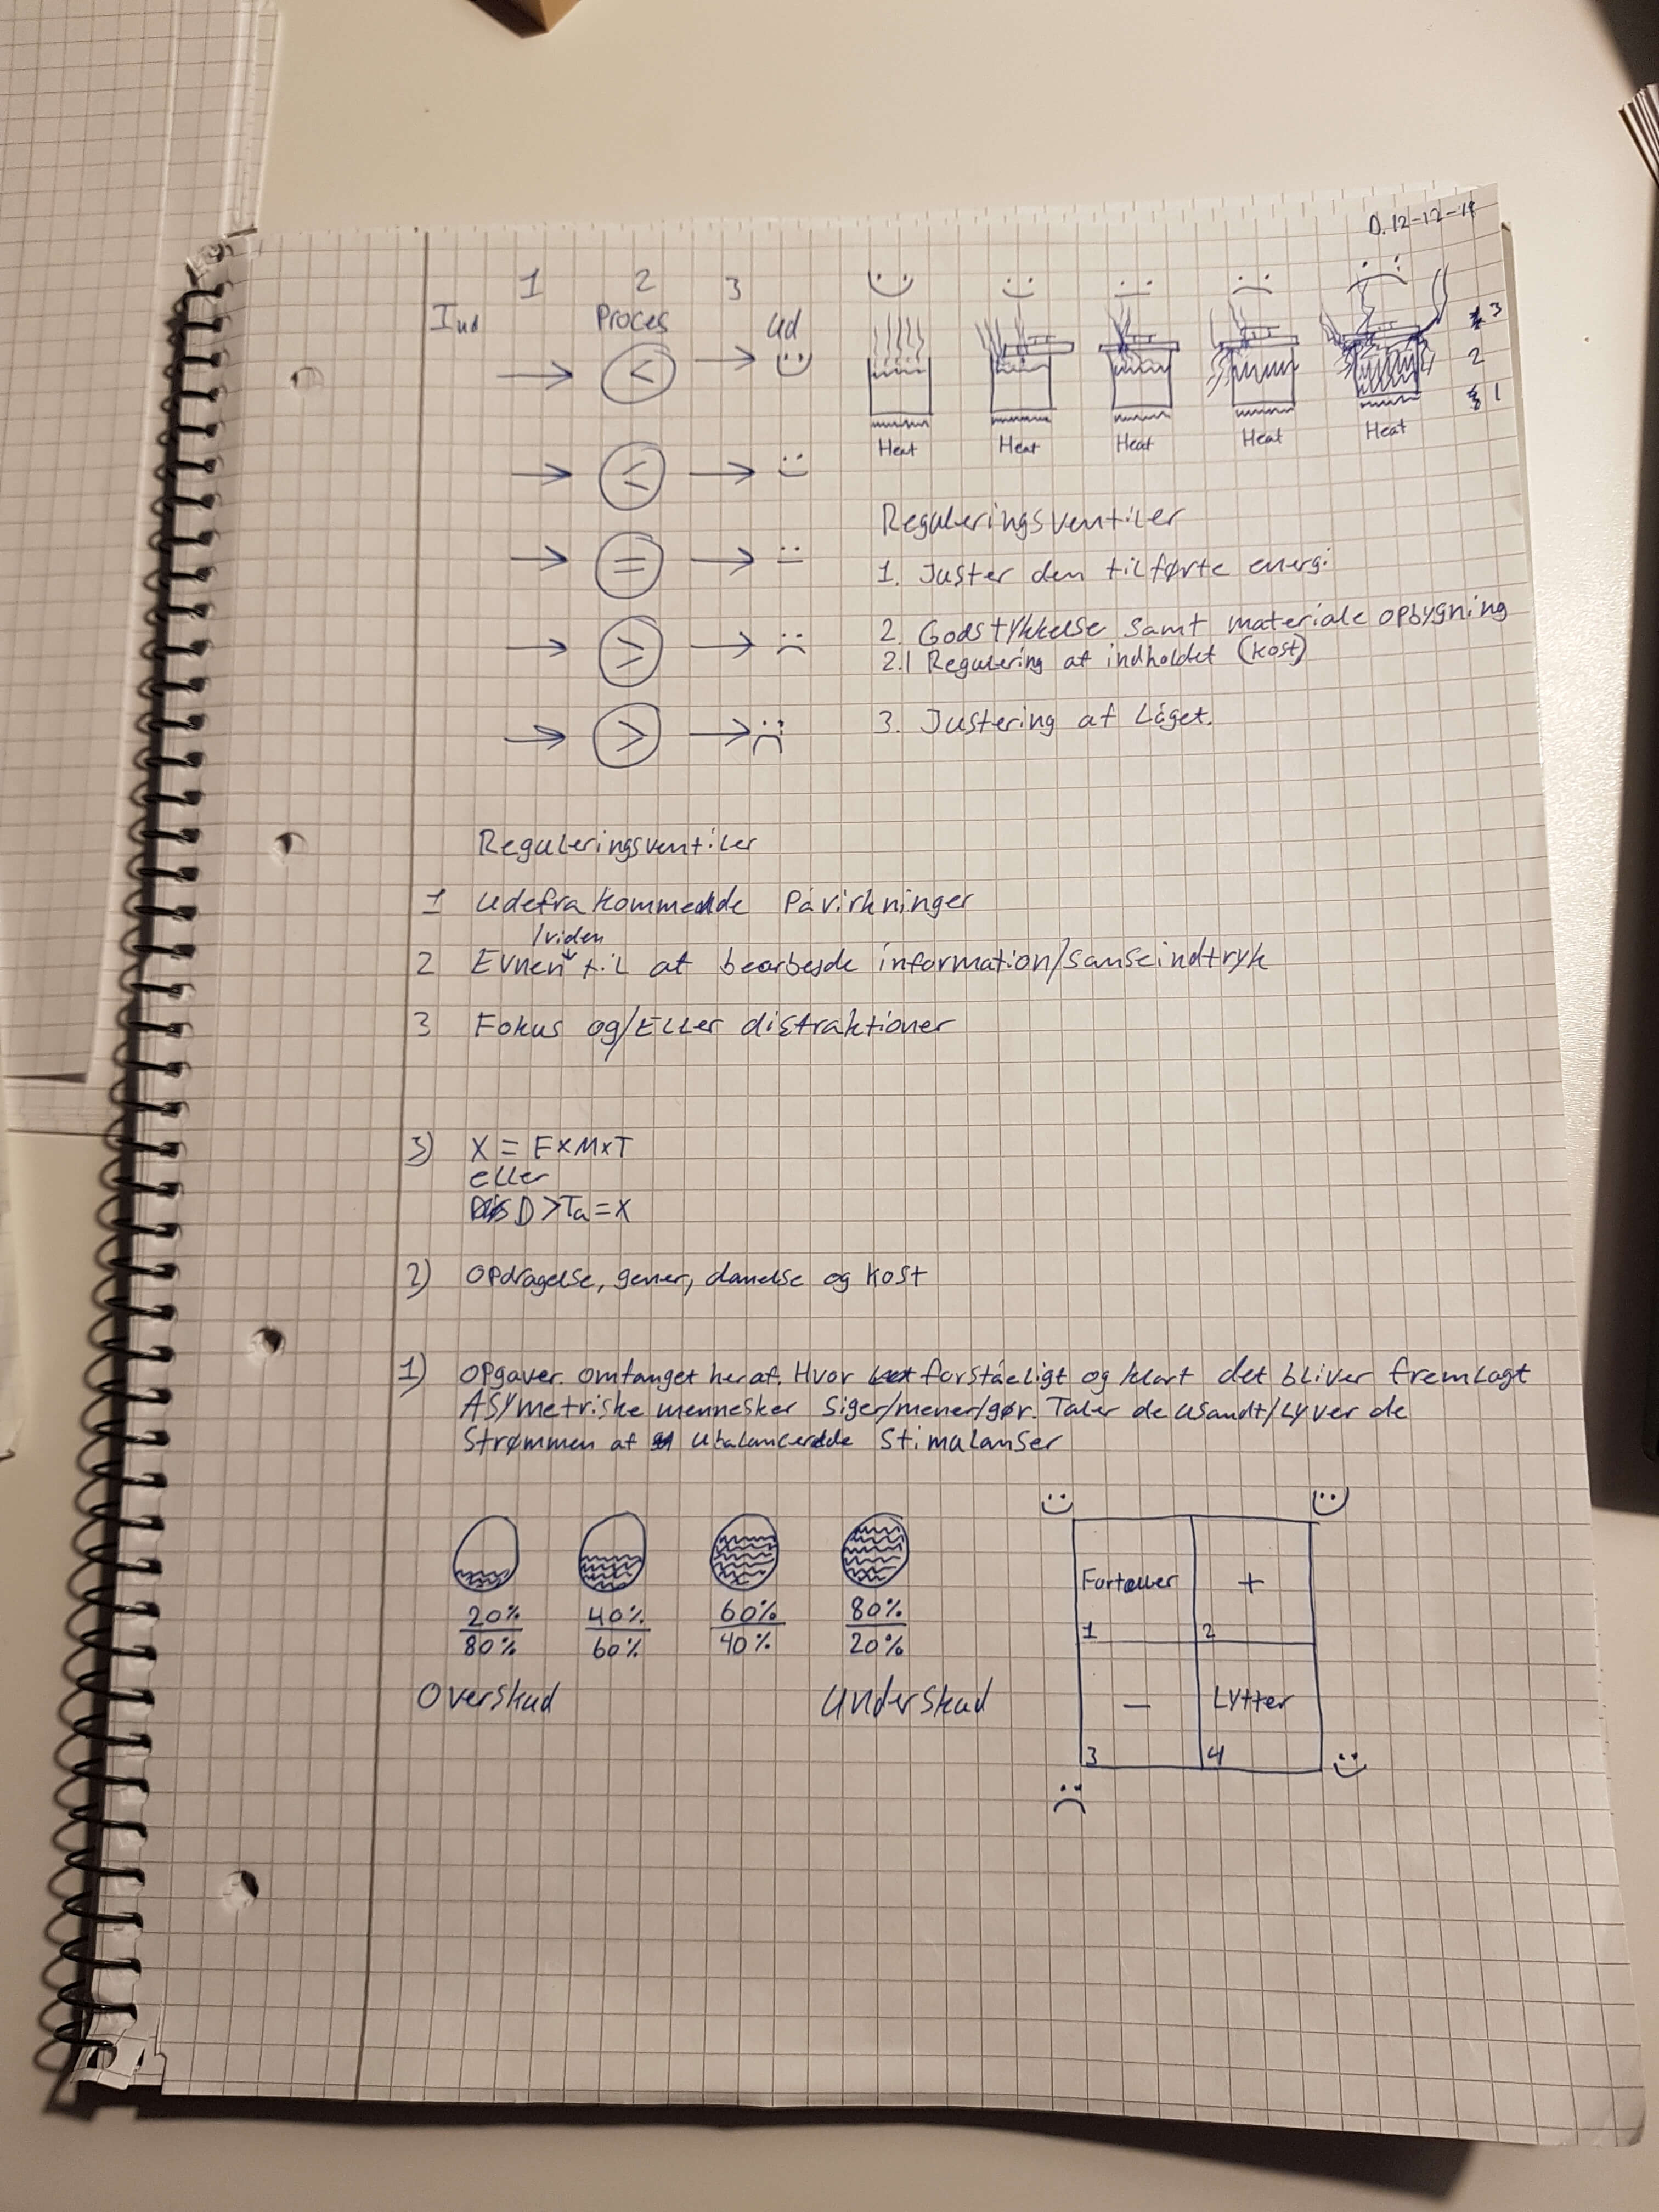 D. 12-12-19
1 2 3
Ind Proces Ud
<
≤
=
≥
>
Heat Heat Heat Heat Heat
3
2
1
Reguleringsventiler
1. Juster den tilførte energi
2. Godstykkelse samt materiale opbygning
2.1 Regulering af indholdet (kost)
3. Justering af Låget.
Reguleringsventiler
1 Udefra kommende Påvirkninger
/viden
2 Evnen til at bearbejde information/sanseindtryk
3 Fokus og/Eller distraktioner
3) X = F×M×T
eller
D>Ta=X
2) Opdragelse, gener, danelse og kost
1) Opgaver. Omfanget heraf. Hvor forståeligt og klart det bliver fremlagt
Asymetriske mennesker siger/mener/gør. Taler de usandt/Lyver de
Strømmen af ubalancerede Stimulanser
20% 40% 60% 80%
80% 60% 40% 20%
Overskud Underskud
Fortæller +
1 2
− Lytter
3 4